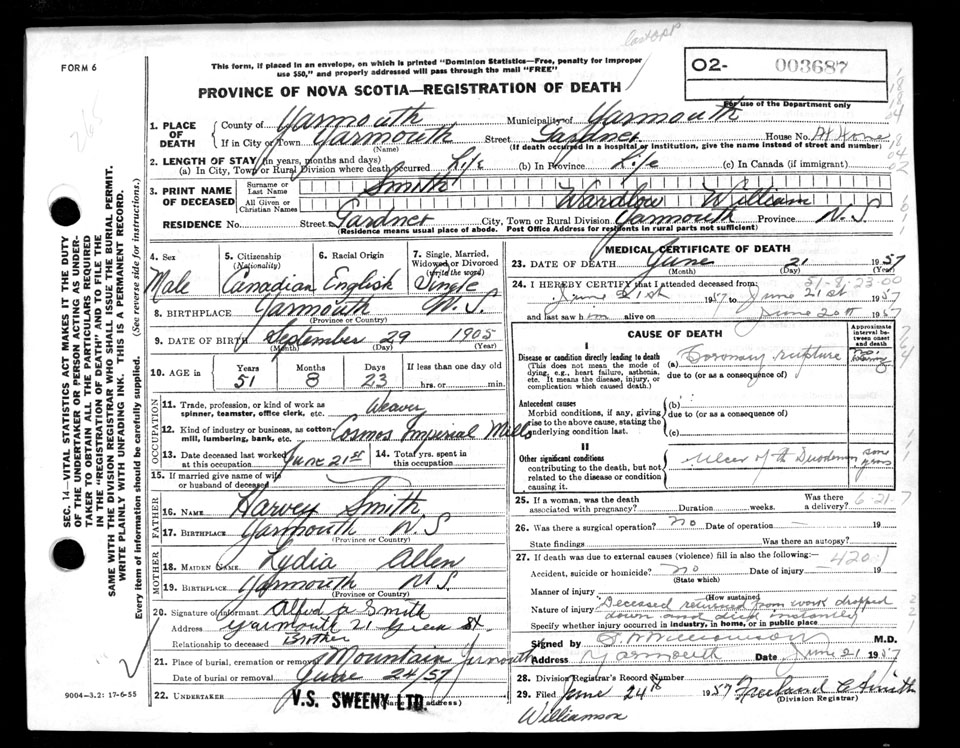 FORM 6
This form, if placed in an envelope, on which is printed "Dominion Statistics—Free, penalty for improper
use $50," and properly addressed will pass through the mail "FREE"
PROVINCE OF NOVA SCOTIA—REGISTRATION OF DEATH
O2- 003687
For use of the Department only
1. PLACE OF DEATH
County of Yarmouth Municipality of Yarmouth
If in City or Town Yarmouth Street Gardner House No. At Home
(Name) (If death occurred in a hospital or institution, give the name instead of street and number)
2. LENGTH OF STAY (in years, months and days)
(a) In City, Town or Rural Division where death occurred Life (b) In Province Life (c) In Canada (if immigrant)
3. PRINT NAME OF DECEASED
Surname or Last Name Smith
All Given or Christian Names Wardlow William
RESIDENCE No. Street Gardner City, Town or Rural Division Yarmouth Province N.S.
(Residence means usual place of abode. Post Office Address for residents in rural parts not sufficient)
4. Sex Male
5. Citizenship (Nationality) Canadian
6. Racial Origin English
7. Single, Married, Widowed or Divorced (write the word) Single
8. BIRTHPLACE Yarmouth N.S.
(Province or Country)
9. DATE OF BIRTH September 29 1905
(Month) (Day) (Year)
10. AGE in Years 51 Months 8 Days 23 If less than one day old
hrs. or min.
OCCUPATION
11. Trade, profession, or kind of work as spinner, teamster, office clerk, etc. Weaver
12. Kind of industry or business, as cotton-mill, lumbering, bank, etc. Cosmos Imperial Mills
13. Date deceased last worked at this occupation June 21st 14. Total yrs. spent in this occupation
15. If married give name of wife or husband of deceased
FATHER
16. NAME Harvey Smith
17. BIRTHPLACE Yarmouth N.S
(Province or Country)
MOTHER
18. MAIDEN NAME Lydia Allen
19. BIRTHPLACE Yarmouth N.S.
(Province or Country)
20. Signature of informant Alfred A Smith
Address Yarmouth 21 Green St.
Relationship to deceased Brother
21. Place of burial, cremation or removal Mountain Yarmouth
Date of burial or removal June 24/57
22. UNDERTAKER V.S. SWEENY LTD.
(Name and address)
9004-3.2: 17-6-55
MEDICAL CERTIFICATE OF DEATH
23. DATE OF DEATH June 21 1957
(Month) (Day) (Year)
24. I HEREBY CERTIFY that I attended deceased from:
June 21st 1957 to June 21st 1957
and last saw him alive on June 20th 1957
CAUSE OF DEATH
Approximate interval between onset and death
I
Disease or condition directly leading to death
(This does not mean the mode of dying, e.g., heart failure, asthenia, etc. It means the disease, injury, or complication which caused death.)
(a) Coronary rupture
due to (or as a consequence of)
Antecedent causes
Morbid conditions, if any, giving rise to the above cause, stating the underlying condition last.
(b)
due to (or as a consequence of)
(c)
II
Other significant conditions
contributing to the death, but not related to the disease or condition causing it.
Ulcer of th Duodenum some years
25. If a woman, was the death associated with pregnancy? Duration weeks. Was there a delivery? 6-21-7
26. Was there a surgical operation? no Date of operation — 19
State findings Was there an autopsy?
27. If death was due to external causes (violence) fill in also the following:—
420.1
Accident, suicide or homicide? no Date of injury 19
(State which)
Manner of injury
(How sustained)
Nature of injury Deceased returned from work dropped
down and died instantly
Specify whether injury occurred in industry, in home, or in public place
Signed by S. W Williamson M.D.
Address Yarmouth Date June 21 1957
28. Division Registrar's Record Number
29. Filed June 24th 1957 Freeland C Smith
(Division Registrar)
Williamson
SEC. 14—VITAL STATISTICS ACT MAKES IT THE DUTY
OF THE UNDERTAKER OR PERSON ACTING AS UNDER-
TAKER TO OBTAIN ALL THE PARTICULARS REQUIRED
IN THE "REGISTRATION OF DEATH" AND TO FILE THE
SAME WITH THE DIVISION REGISTRAR WHO SHALL ISSUE THE BURIAL PERMIT.
WRITE PLAINLY WITH UNFADING INK. THIS IS A PERMANENT RECORD.
Every item of information should be carefully supplied. (See reverse side for instructions.)